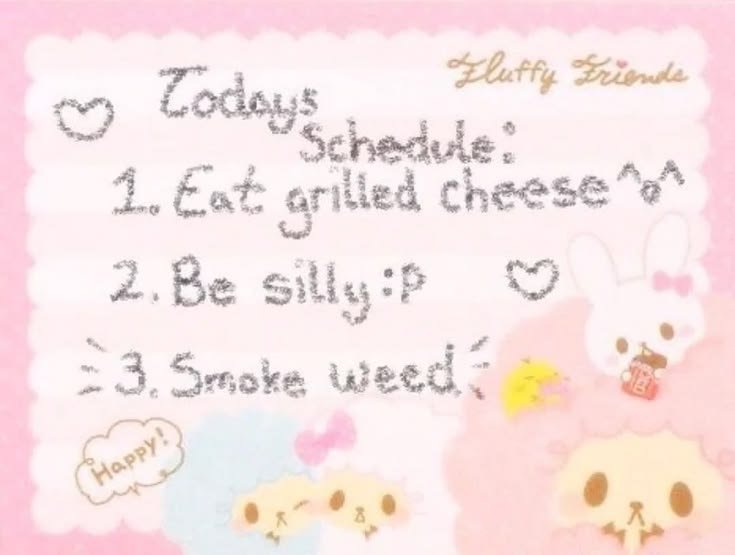 Fluffy Friends
Todays
Schedule:
1. Eat grilled cheese ^o^
2. Be silly :P
3. Smoke weed
Happy!